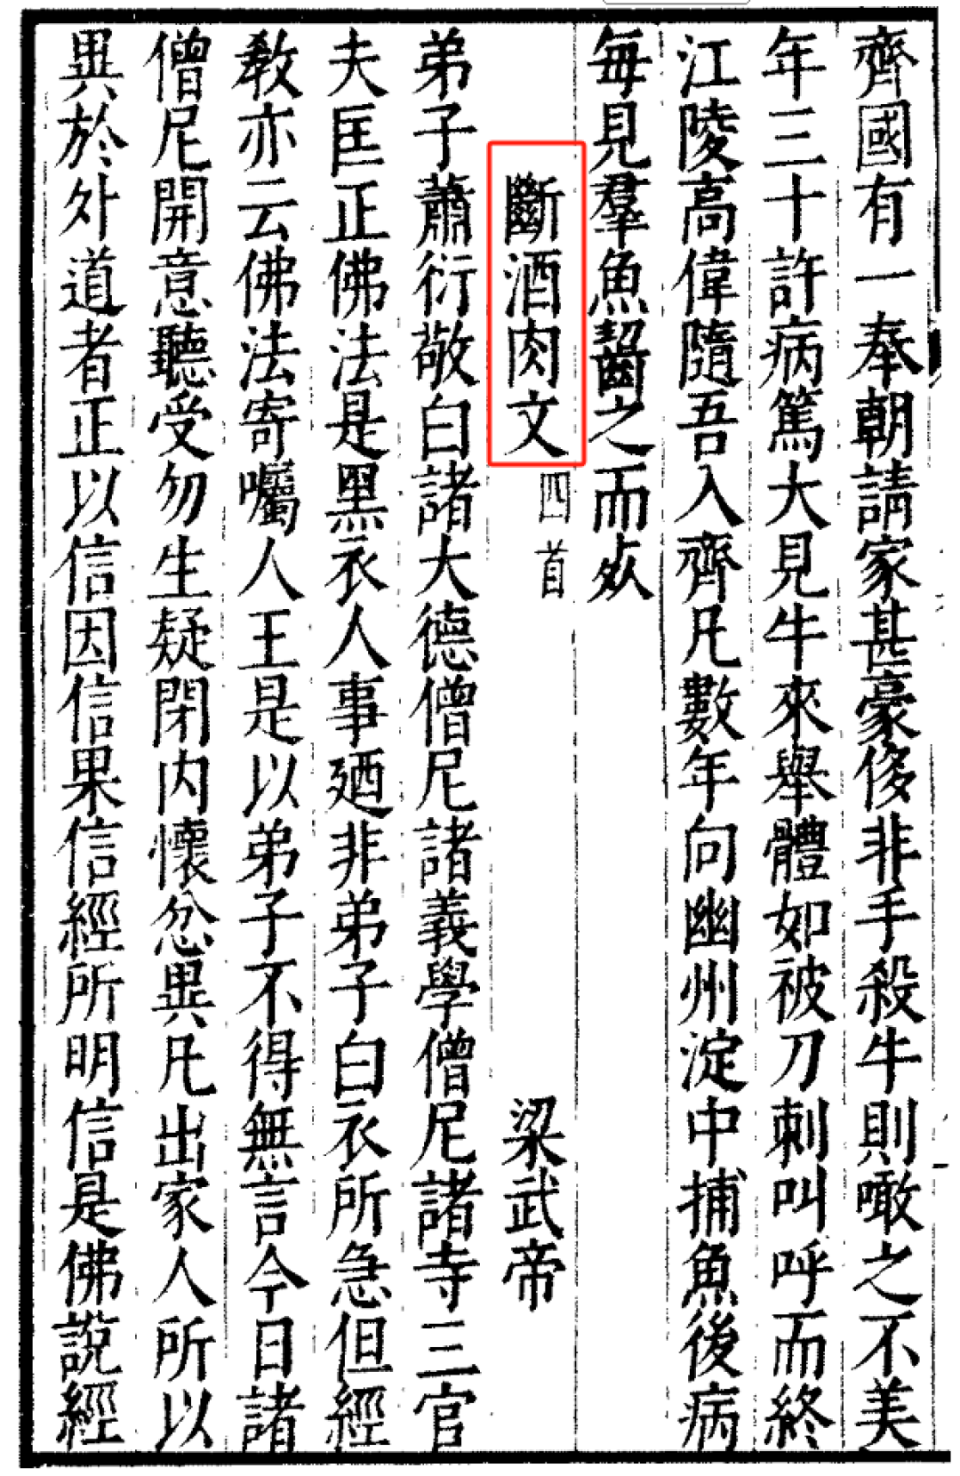 齊國有一奉朝請家甚豪侈非手殺牛則噉之不美
年三十許病篤大見牛來舉體如被刀刺叫呼而終
江陵高偉隨吾入齊凡數年向幽州淀中捕魚後病
每見羣魚齧之而死
斷酒肉文 四首 梁武帝
弟子蕭衍敬白諸大德僧尼諸義學僧尼諸寺三官
夫匡正佛法是黑衣人事廼非弟子白衣所急但經
敎亦云佛法寄囑人王是以弟子不得無言今日諸
僧尼開意聽受勿生疑閉内懷忿異凡出家人所以
異於外道者正以信因信果信經所明信是佛說經